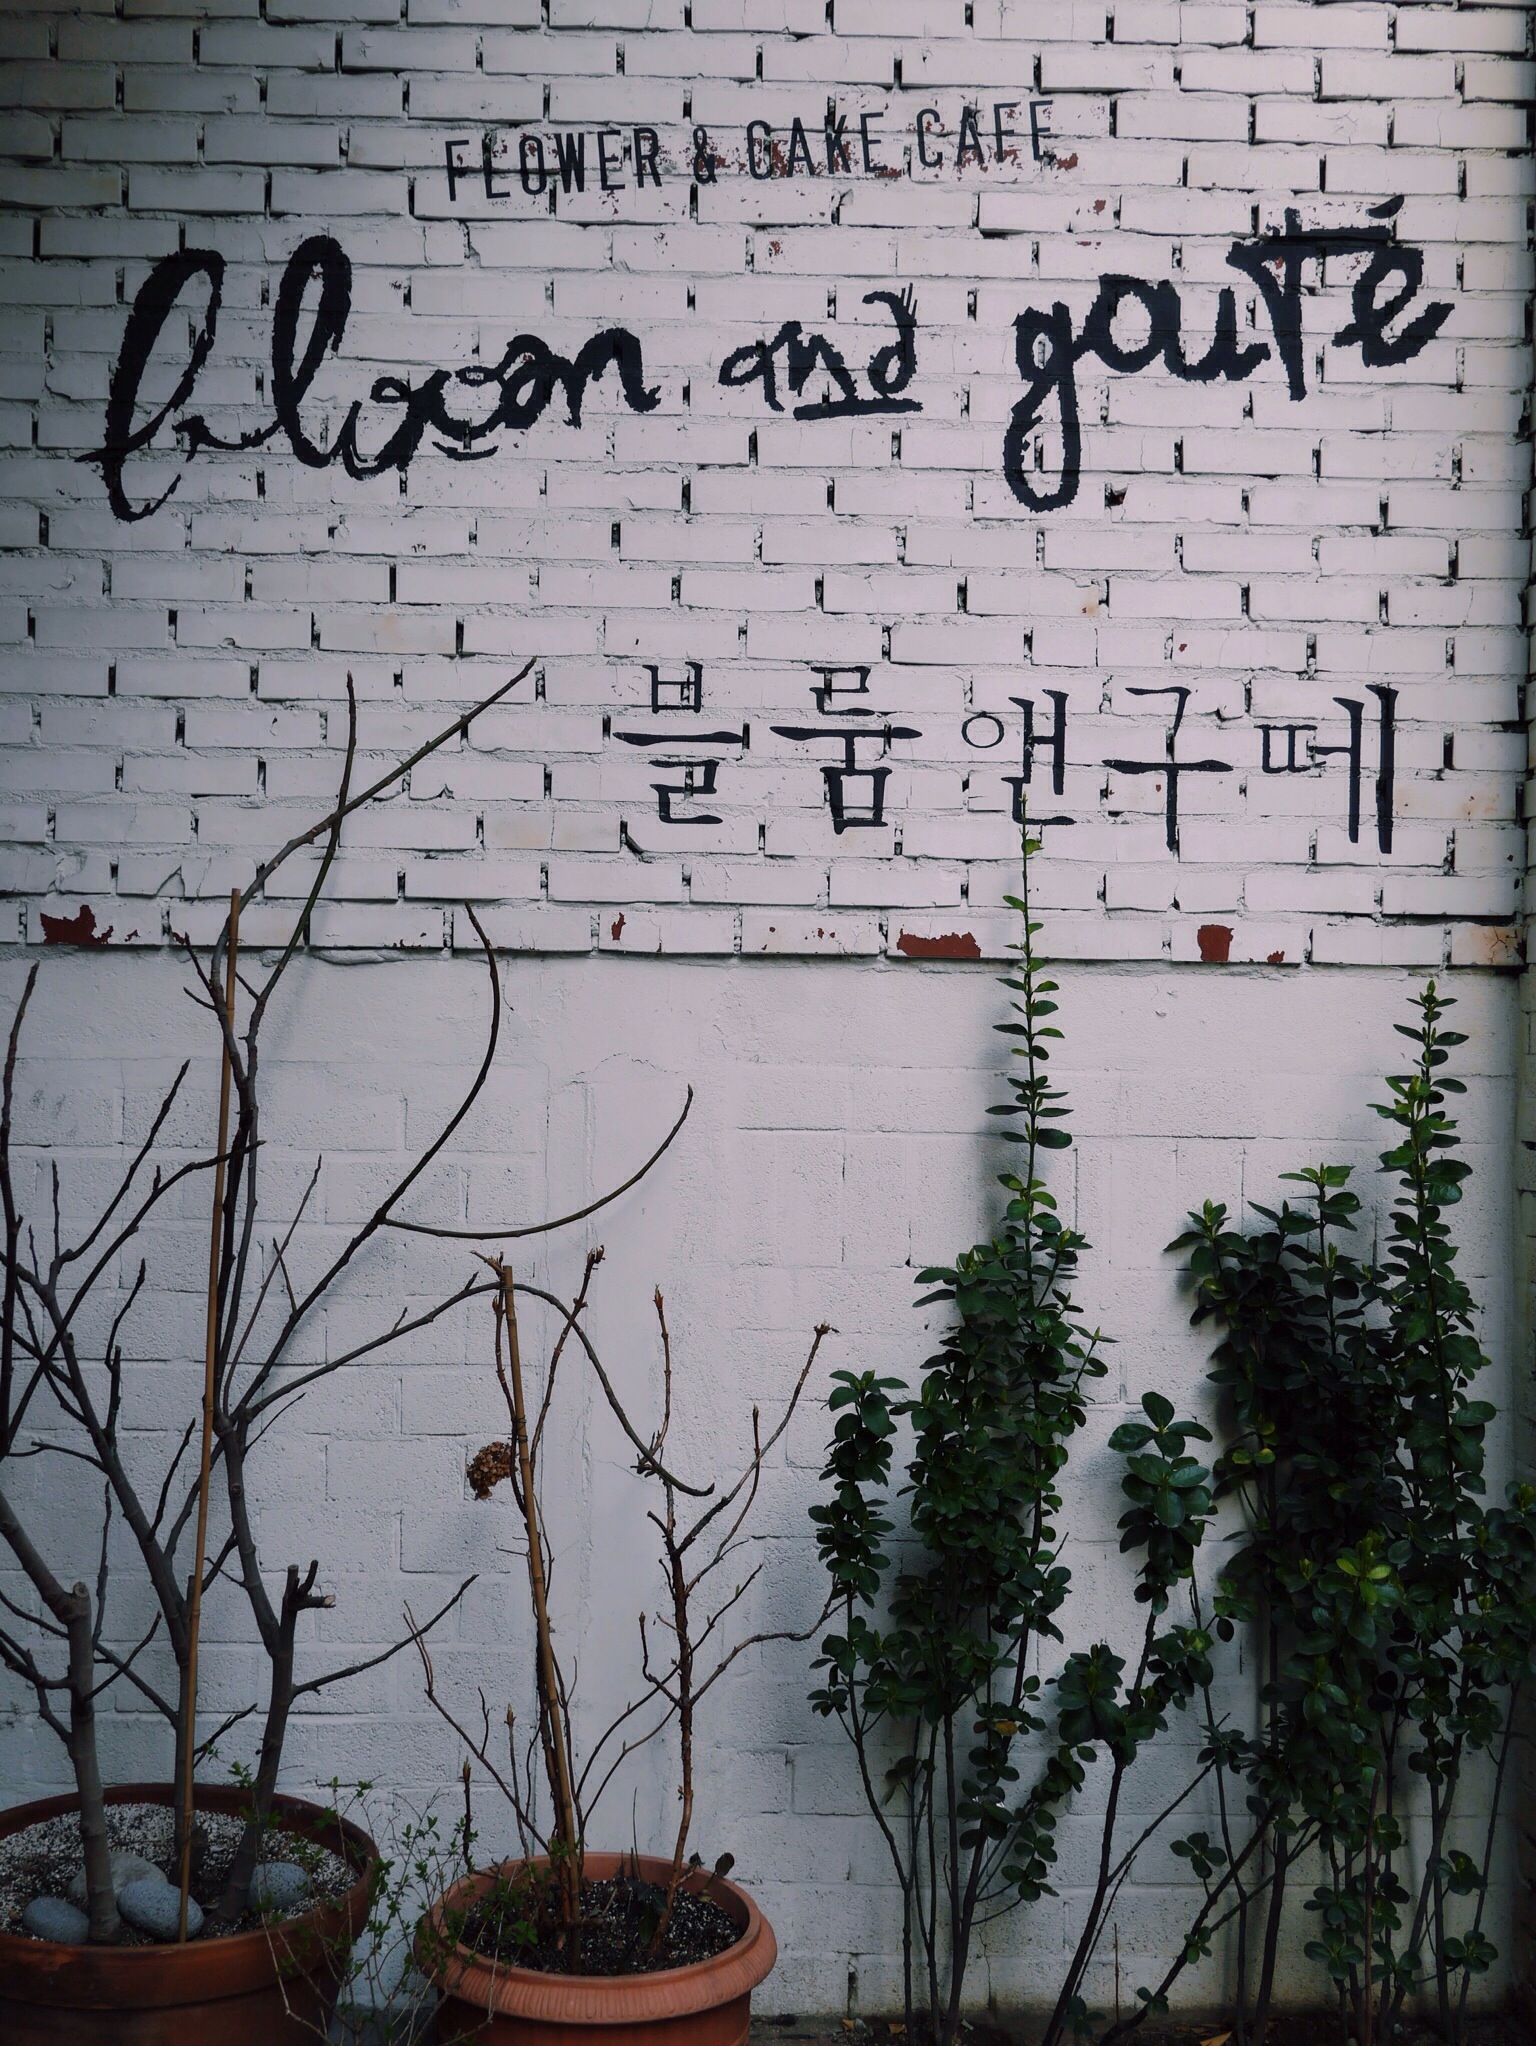 FLOWER & CAKE CAFE
bloom and gouté
블룸앤구떼